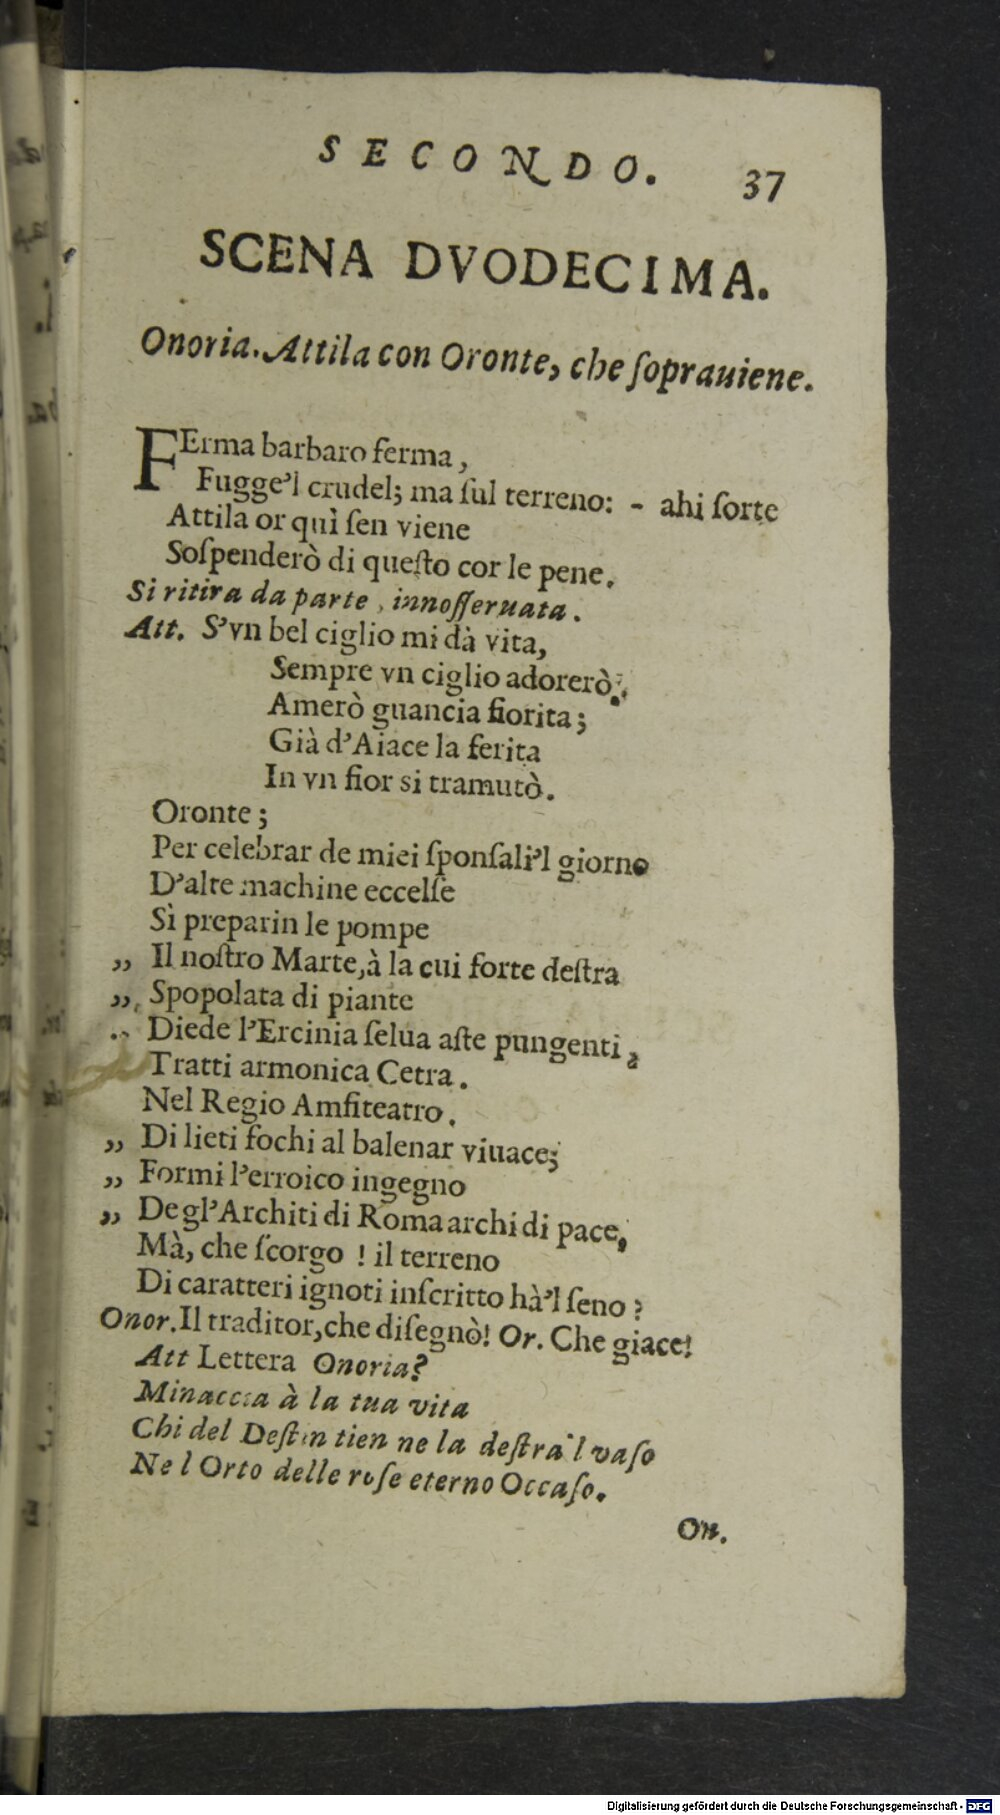 SECONDO. 37
SCENA DVODECIMA.
Onoria. Attila con Oronte, che ſoprauiene.
FErma barbaro ferma,
Fugge'l crudel; ma ſul terreno: - ahi ſorte
Attila or quì ſen viene
Soſpenderò di queſto cor le pene.
Si ritira da parte, innoſſeruata.
Att. S'vn bel ciglio mi dà vita,
Sempre vn ciglio adorerò;
Amerò guancia fiorita;
Già d'Aiace la ferita
In vn fior si tramutò.
Oronte;
Per celebrar de miei ſponſali'l giorno
D'alte machine eccelſe
Sì preparin le pompe
„ Il noſtro Marte, à la cui forte deſtra
„ Spopolata di piante
„ Diede l'Ercinia ſelua aſte pungenti,
Tratti armonica Cetra.
Nel Regio Amfiteatro.
„ Di lieti fochi al balenar viuace;
„ Formi l'erroico ingegno
„ De gl'Architi di Roma archi di pace,
Mà, che ſcorgo ! il terreno
Di caratteri ignoti inſcritto hà'l ſeno ?
Onor. Il traditor, che diſegnò! Or. Che giace!
Att Lettera Onoria?
Minaccia à la tua vita
Chi del Deſtin tien ne la deſtra'l vaſo
Ne l Orto delle roſe eterno Occaſo.
On.
Digitalisierung gefördert durch die Deutsche Forschungsgemeinschaft - DFG